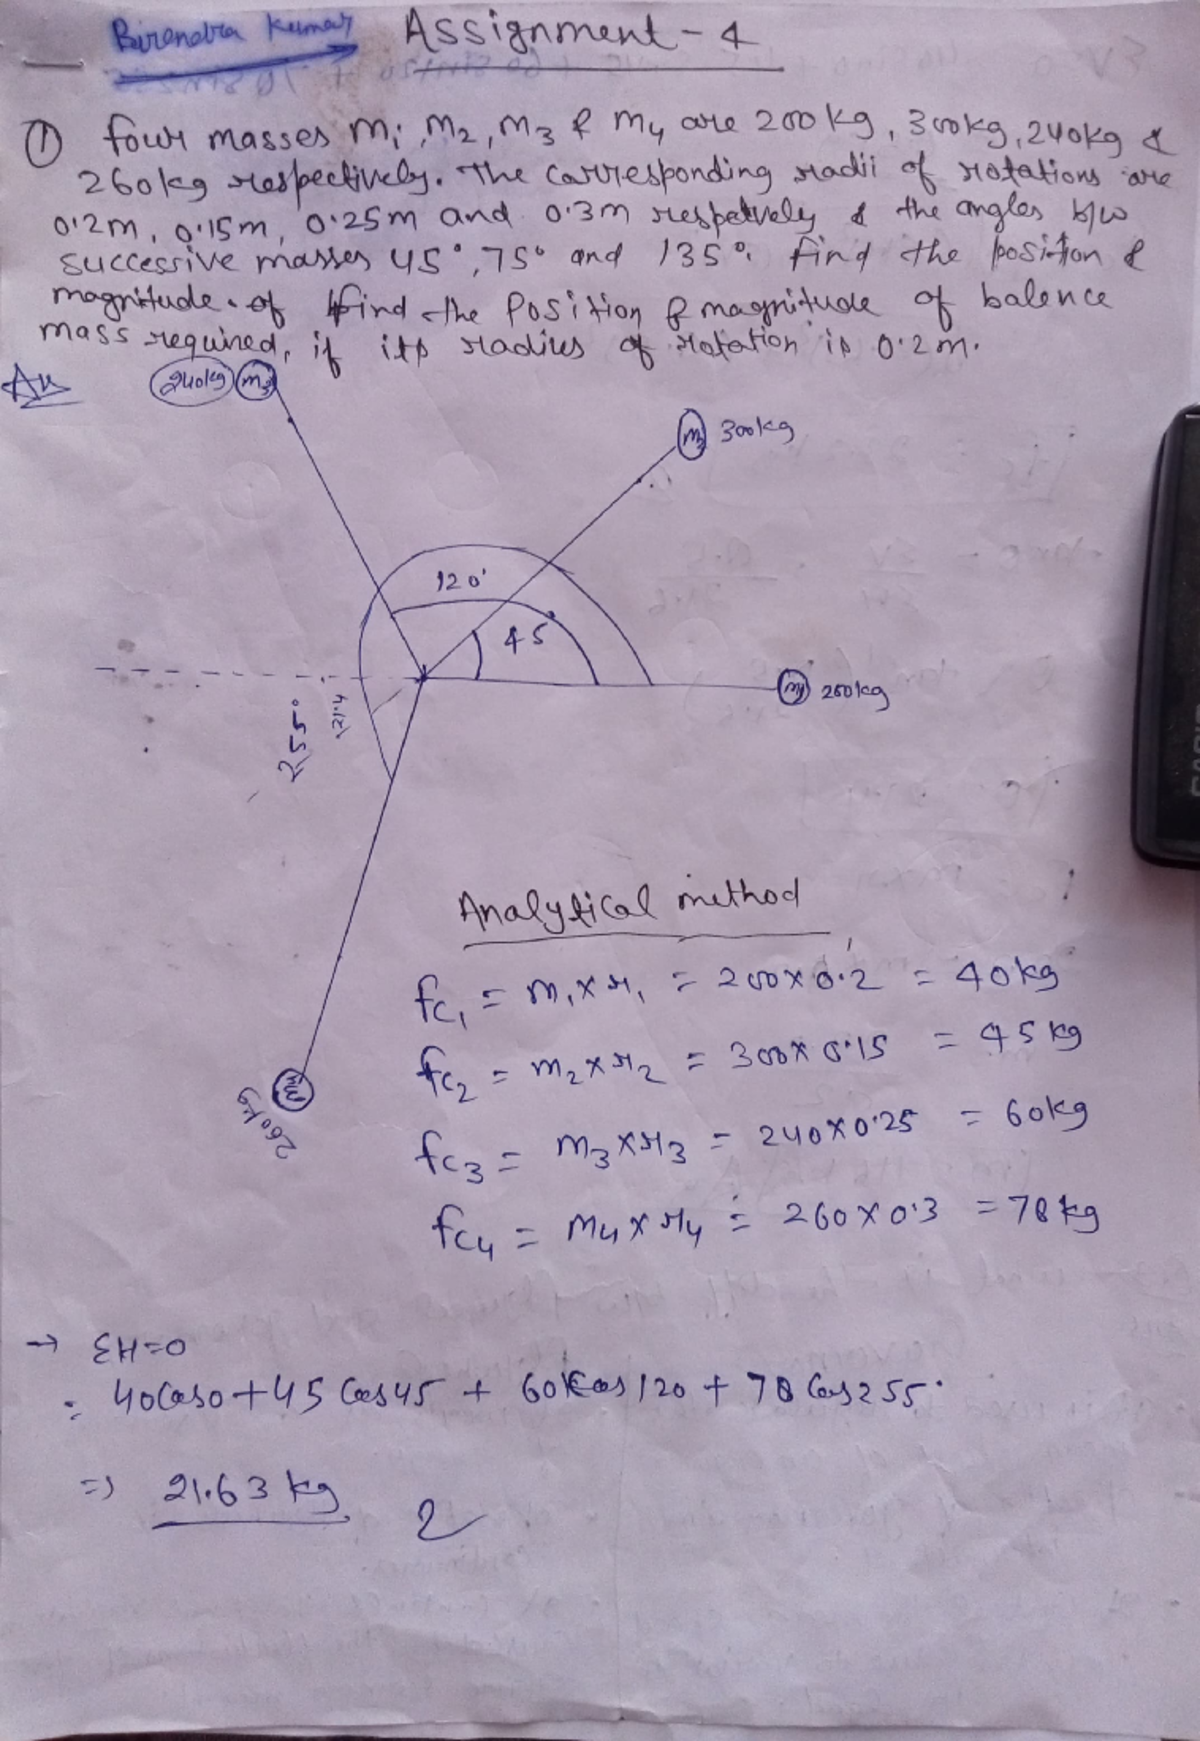 Birendra Kumar Assignment-4
① four masses m1, m2, m3 & m4 are 200kg, 300kg, 240kg &
260kg respectively. The corresponding radii of rotations are
0.2m, 0.15m, 0.25m and 0.3m respetvely & the angles b/w
successive masses 45°, 75° and 135°. find the position &
magnitude. of find the Position & magnitude of balence
mass required, if its radius of rotation is 0.2m.
Ans
240kg m3
m2 300kg
120°
45
m1 200kg
255°
m4
260kg
Analytical method
fc1 = m1×r1 = 200×0.2 = 40kg
fc2 = m2×r2 = 300×0.15 = 45kg
fc3 = m3×r3 = 240×0.25 = 60kg
fc4 = m4×r4 = 260×0.3 = 78kg
→ ΣH=0
= 40Cos0+45 Cos45 + 60Cos120 + 78 Cos255°
=> 21.63 kg